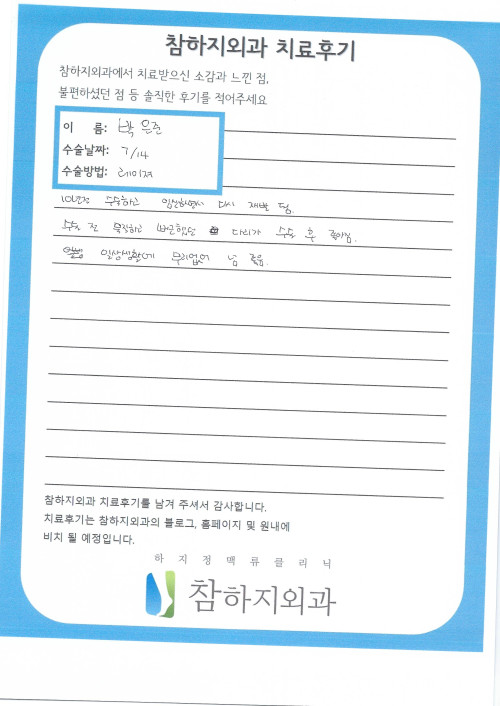 참하지외과 치료후기
참하지외과에서 치료받으신 소감과 느낀 점,
불편하셨던 점 등 솔직한 후기를 적어주세요
이 름: 박은준
수술날짜: 7/14
수술방법: 레이저
10년전 수술하고 임신하면서 다시 재발 됨.
수술 전 묵직하고 뻐근했던 다리가 수술 후 좋아짐.
일상생활에 무리없어 넘 좋음.
참하지외과 치료후기를 남겨 주셔서 감사합니다.
치료후기는 참하지외과의 블로그, 홈페이지 및 원내에
비치 될 예정입니다.
하지정맥류클리닉
참하지외과